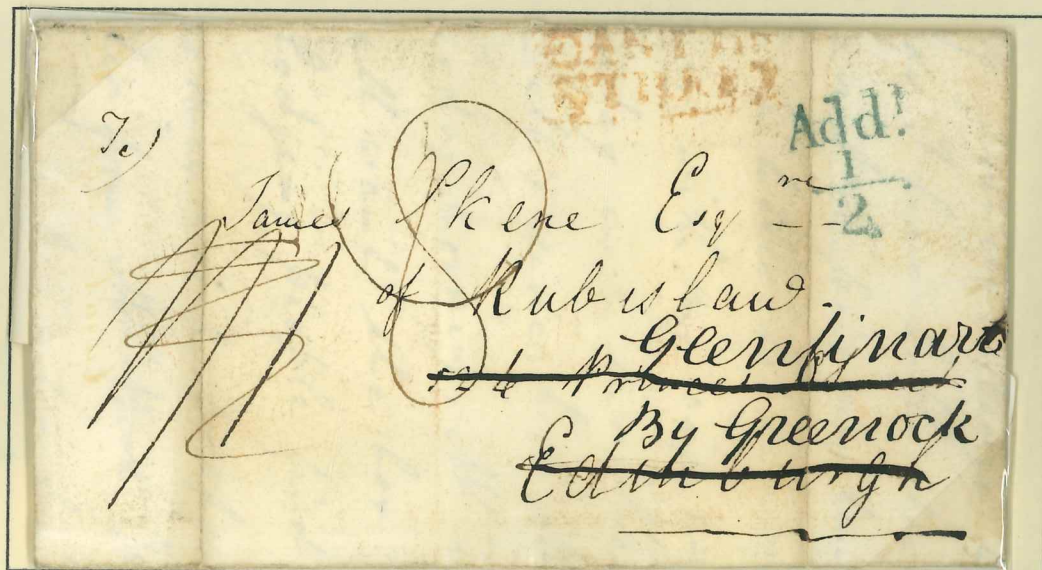 Add!
1
2
To)
James Skene Esqre
of Rubislaw.
Glenfinart
126 Princes Street
By Greenock
Edinburgh